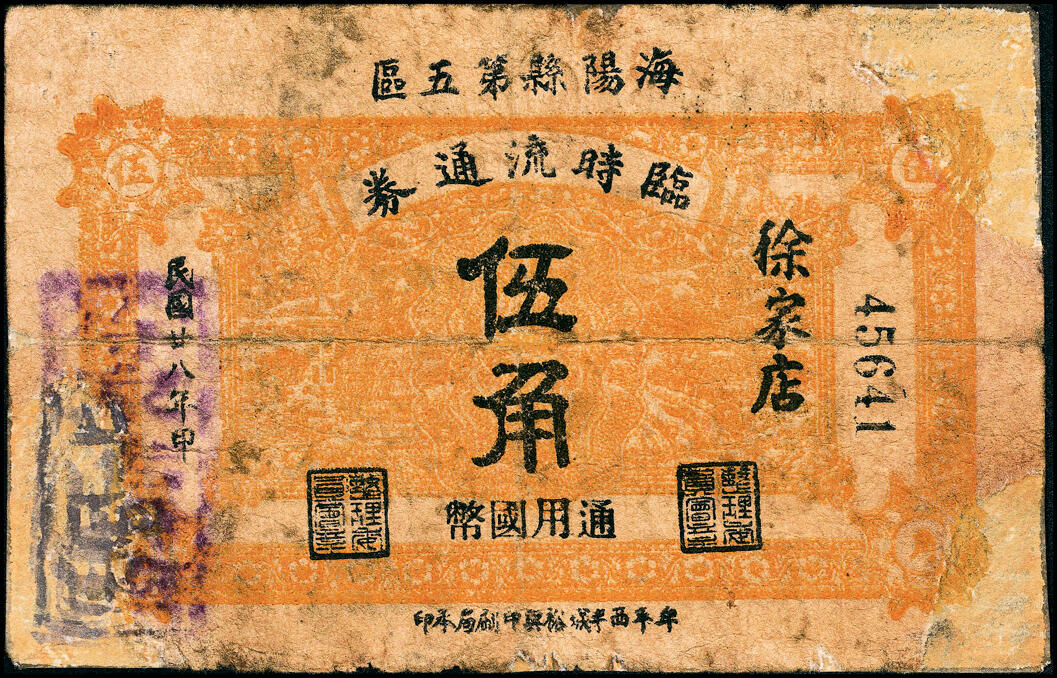 海陽縣第五區
臨時流通券
伍
徐家店
45641
伍角
民國廿八年印
通用國幣
牟平西半城裕興印刷局承印